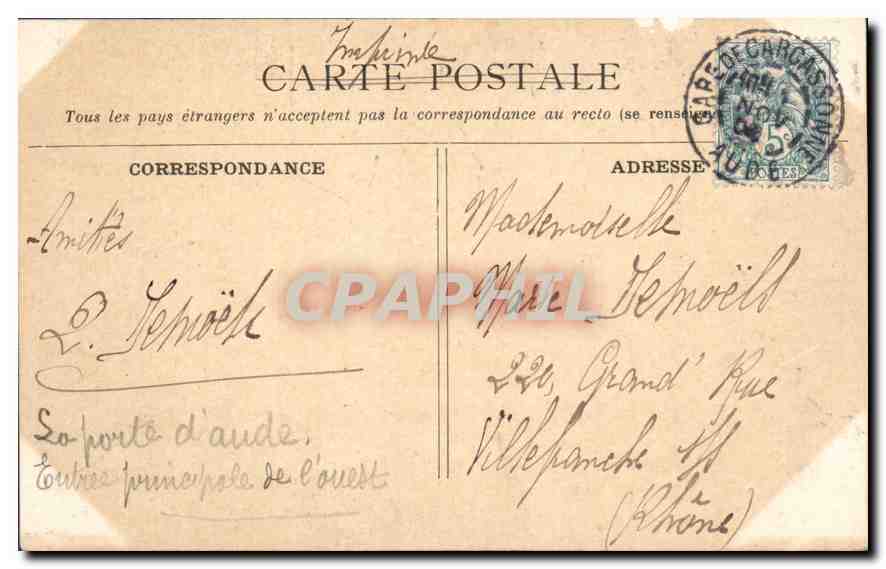 Imprimé
CARTE POSTALE
Tous les pays étrangers n'acceptent pas la correspondance au recto (se renseigner
GARE DE CARCASSONNE
NOV
AUDE
5c
POSTES
CORRESPONDANCE
Amitiés
L.
La porte d'aude.
Entrée principale de l'ouest
ADRESSE
Mademoiselle
Marie
220, Grand' Rue
Villefranche s/s
(Rhône)
CPAPHIL